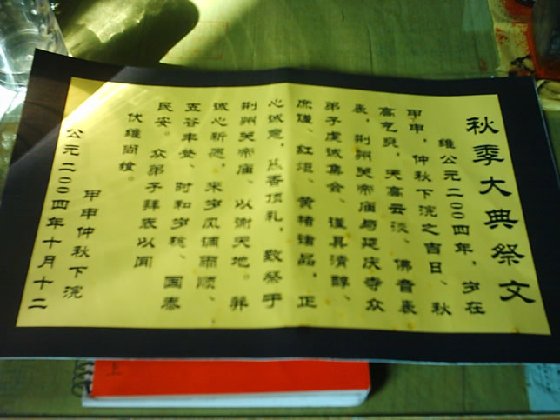 秋季大典祭文
維公元二00四年,岁在
甲申,仲秋下浣之吉日、秋
高气爽,天高云淡、佛音袅
袅,荆州关帝庙与延庆寺众
弟子虔诚集会、谨具清醇、
庶馐、红烛、黄幡诸品,正
心诚意,香顶礼,致祭于
荆州关帝庙,以谢天地。并
诚心祈愿,来岁风调雨顺、
五谷丰登、时和岁稔、国泰
民安。众弟子拜表以闻
伏維尚飨。
甲申仲秋下浣
公元二00四年十月十二